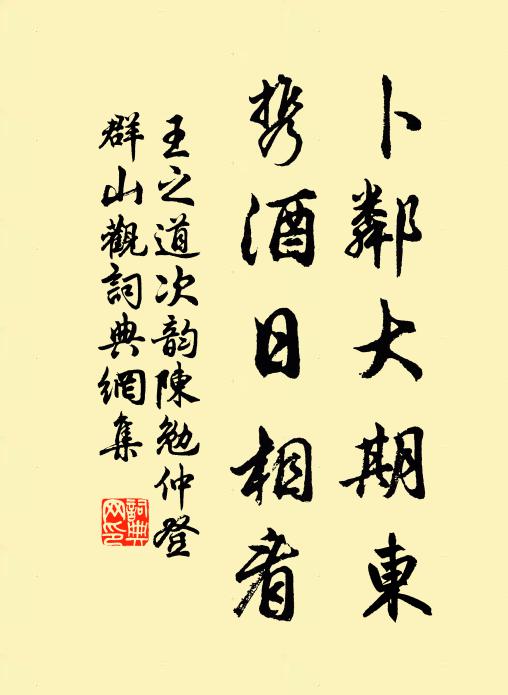 卜鄰大期東
携酒日相看
王之道次韵陳勉仲登
群山觀詞典網集
詞典
网印